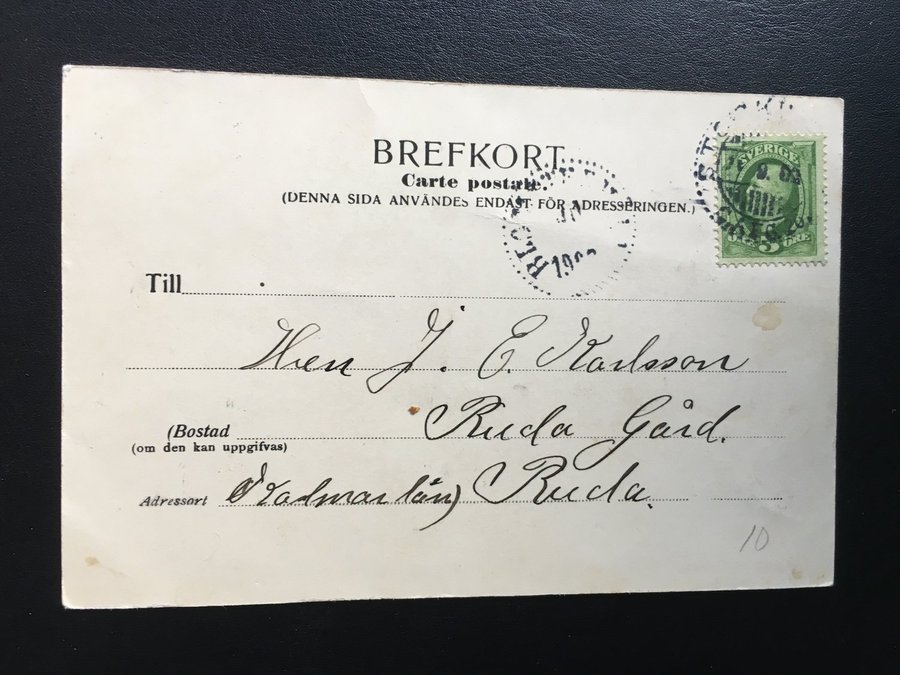 BREFKORT
Carte postale.
(DENNA SIDA ANVÄNDES ENDAST FÖR ADRESSERINGEN.)
SVERIGE
5 ÖRE
Till
Herr J. E. Karlsson
(Bostad Ruda Gård.
(om den kan uppgifvas)
Adressort (Kalmar län) Ruda.
10